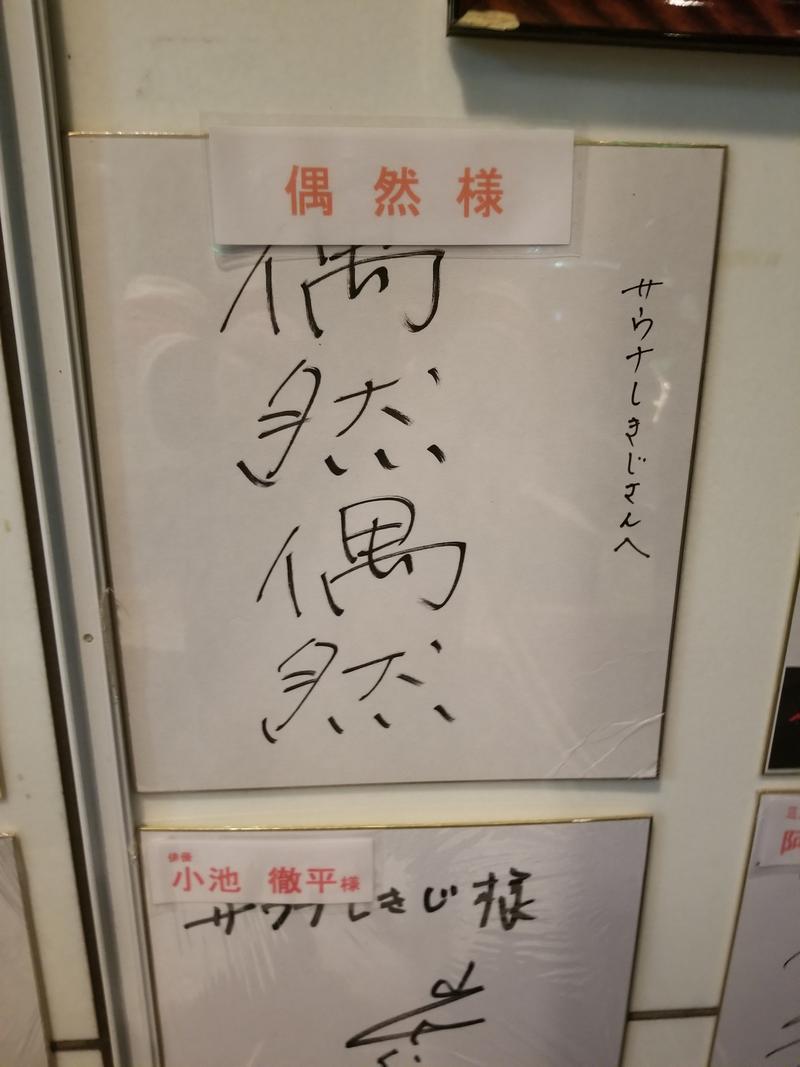 偶然様
サウナしきじさんへ
偶
然
偶
然
俳優
小池 徹平様
サウナしきじ様